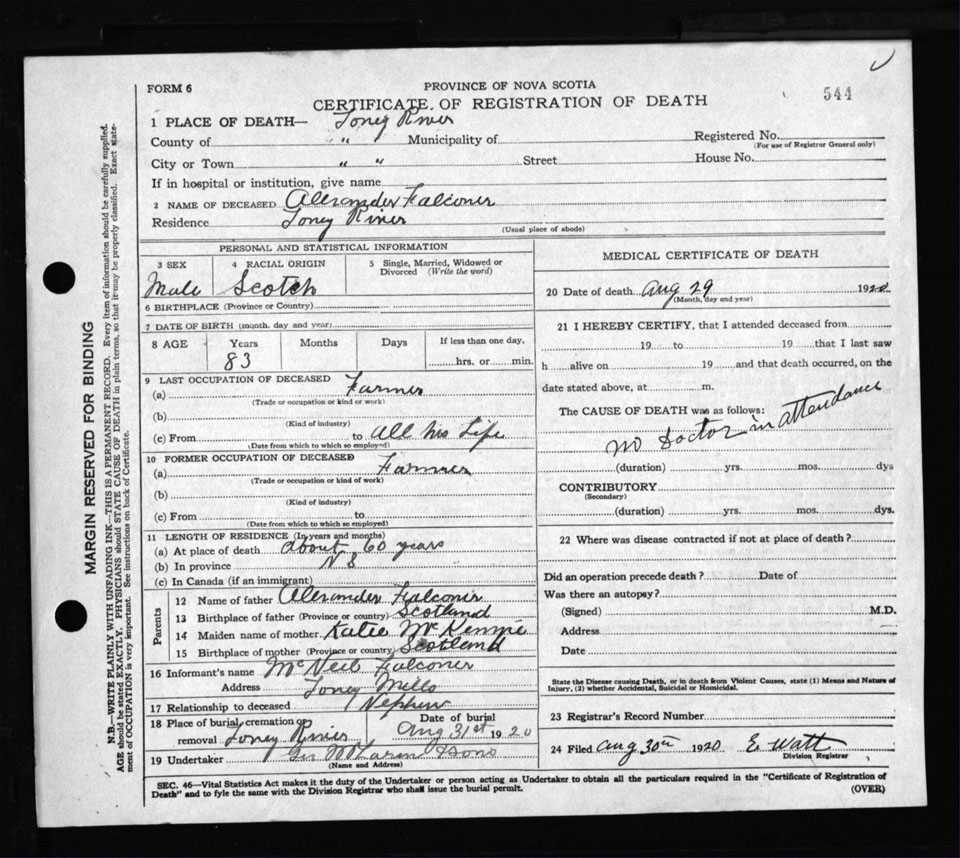 FORM 6
PROVINCE OF NOVA SCOTIA
544
CERTIFICATE OF REGISTRATION OF DEATH
1 PLACE OF DEATH— Toney River
County of " " Municipality of Registered No.
(For use of Registrar General only)
City or Town " " Street House No.
If in hospital or institution, give name
2 NAME OF DECEASED Alexander Falconer
Residence Toney River
(Usual place of abode)
PERSONAL AND STATISTICAL INFORMATION
3 SEX 4 RACIAL ORIGIN 5 Single, Married, Widowed or
Divorced (Write the word)
Male Scotch
6 BIRTHPLACE (Province or Country)
7 DATE OF BIRTH (month, day and year)
8 AGE Years Months Days If less than one day,
83 hrs. or min.
9 LAST OCCUPATION OF DECEASED
(a) Farmer
(Trade or occupation or kind or work)
(b)
(Kind of industry)
(c) From to all his Life
(Date from which to which so employed)
10 FORMER OCCUPATION OF DECEASED
(a) Farmer
(Trade or occupation or kind of work)
(b)
(Kind of industry)
(c) From to
(Date from which to which so employed)
11 LENGTH OF RESIDENCE (In years and months)
(a) At place of death about 60 years
(b) In province N S
(c) In Canada (if an immigrant)
Parents
12 Name of father Alexander Falconer
13 Birthplace of father (Province or country) Scotland
14 Maiden name of mother Katie McKennie
15 Birthplace of mother (Province or country) Scotland
16 Informant's name McNeil Falconer
Address Toney Mills
17 Relationship to deceased Nephew
18 Place of burial, cremation or Date of burial
removal Toney River Aug 31st 1920
19 Undertaker Sons
(Name and Address)
MEDICAL CERTIFICATE OF DEATH
20 Date of death Aug 29 1920
(Month, day and year)
21 I HEREBY CERTIFY, that I attended deceased from
19 to 19 that I last saw
h alive on 19 and that death occurred, on the
date stated above, at m.
The CAUSE OF DEATH was as follows:
no Doctor in attendance
(duration) yrs. mos. dys
CONTRIBUTORY
(Secondary)
(duration) yrs. mos. dys.
22 Where was disease contracted if not at place of death?
Did an operation precede death? Date of
Was there an autopsy?
(Signed) M.D.
Address
Date
State the Disease causing Death, or in death from Violent Causes, state (1) Means and Nature of
Injury, (2) whether Accidental, Suicidal or Homicidal.
23 Registrar's Record Number
24 Filed Aug 30th 1920 E. Watt
Division Registrar
SEC. 46—Vital Statistics Act makes it the duty of the Undertaker or person acting as Undertaker to obtain all the particulars required in the "Certificate of Registration of
Death" and to fyle the same with the Division Registrar who shall issue the burial permit.
(OVER)
MARGIN RESERVED FOR BINDING
N.B.—WRITE PLAINLY WITH UNFADING INK—THIS IS A PERMANENT RECORD. Every item of information should be carefully supplied.
AGE should be stated EXACTLY. PHYSICIANS should STATE CAUSE OF DEATH in plain terms, so that it may be properly classified. Exact state-
ment of OCCUPATION is very important. See instructions on back of Certificate.